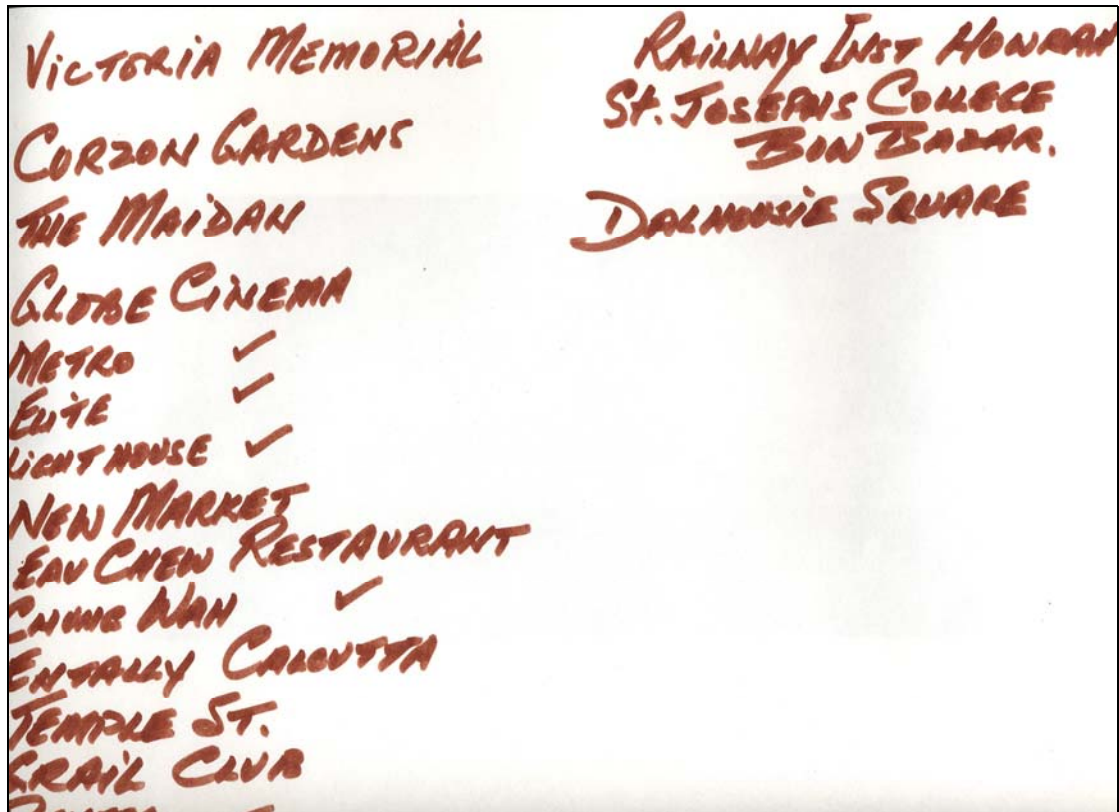 Victoria Memorial
Corzon Gardens
The Maidan
Globe Cinema
Metro ✓
Elite ✓
Light House ✓
New Market
Eau Chew Restaurant
Chung Wah ✓
Entally Calcutta
Temple St.
Grail Club
Railway Inst Howrah
St. Josephs College
Bow Bazar.
Dalhousie Square